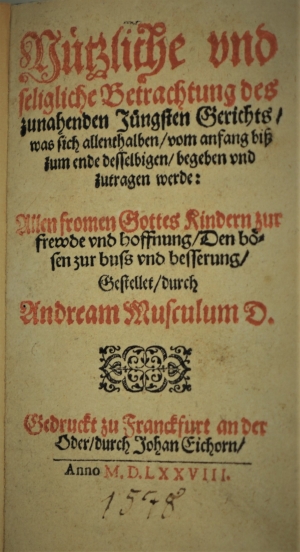 Nützliche vnd
seligliche Betrachtung des
zunahenden Jüngsten Gerichts/
was sich allenthalben/vom anfang biß
zum ende desselbigen/begeben vnd
zutragen werde:
Allen fromen Gottes Kindern zur
frewde vnd hoffnung/Den bö-
sen zur buss vnd besserung/
Gestellet/durch
Andream Musculum D.
Gedruckt zu Franckfurt an der
Oder/durch Johan Eichorn/
Anno M.D.LXXVIII.
1578